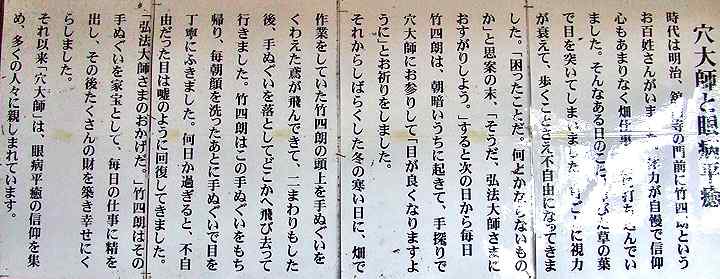 穴大師と眼病平癒
時代は明治、舘山寺の門前に竹四朗という
お百姓さんがいました。 力が自慢で信仰
心もあまりなく畑仕事 打ち込んでい
ました。そんなある日のこと、 びた草の葉
で目を突いてしまいました。 に視力
が衰えて、歩くことさえ不自由になってきま
した。「困ったことだ。何とかならないもの
か」と思案の末、「そうだ、弘法大師さまに
おすがりしよう。」すると次の日から毎日
竹四朗は、朝暗いうちに起きて、手探りで
穴大師にお参りして「目が良くなりますよ
うに」とお祈りをしました。
それからしばらくした冬の寒い日に、畑で
作業をしていた竹四朗の頭上を手ぬぐいを
くわえた鳶が飛んできて、二~まわりもした
後、手ぬぐいを落としてどこかへ飛び去って
行きました。竹四朗はこの手ぬぐいをもち
帰り、毎朝顔を洗ったあとに手ぬぐいで目を
丁寧にふきました。何日か過ぎると、不自
由だった目は嘘のように回復してきました。
「弘法大師さまのおかげだ。」竹四朗はその
手ぬぐいを家宝として、毎日の仕事に精を
出し、その後たくさんの財を築き幸せにく
らしました。
それ以来「穴大師」は、眼病平癒の信仰を集
め、多くの人々に親しまれています。